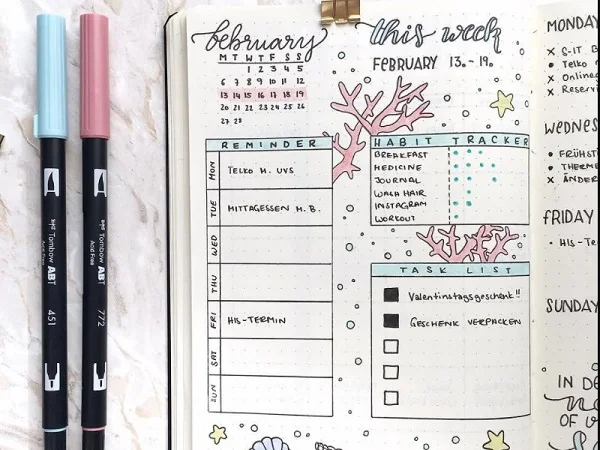 february
M T W T F S S
1 2 3 4 5
6 7 8 9 10 11 12
13 14 15 16 17 18 19
20 21 22 23 24 25 26
27 28
REMINDER
MON TELKO M. UVS
TUE MITTAGESSEN M. B.
WED
THU
FRI HIS-TERMIN
SAT
SUN
this week
FEBRUARY 13.-19.
HABIT TRACKER
BREAKFAST
MEDICINE
JOURNAL
WASH HAIR
INSTAGRAM
WORKOUT
TASK LIST
Valentinstagsgeschenk!!
GESCHENK VERPACKEN
MONDAY
x S-IT B
• TELKO
x ONLINE
x RESERVI
WEDNES
• FRÜHST
• THERME
x ÄNDER
FRIDAY
• HIS-T
SUNDAY
IN DE
OF
Tombow ABT
Acid Free
451
Tombow ABT
Acid Free
772